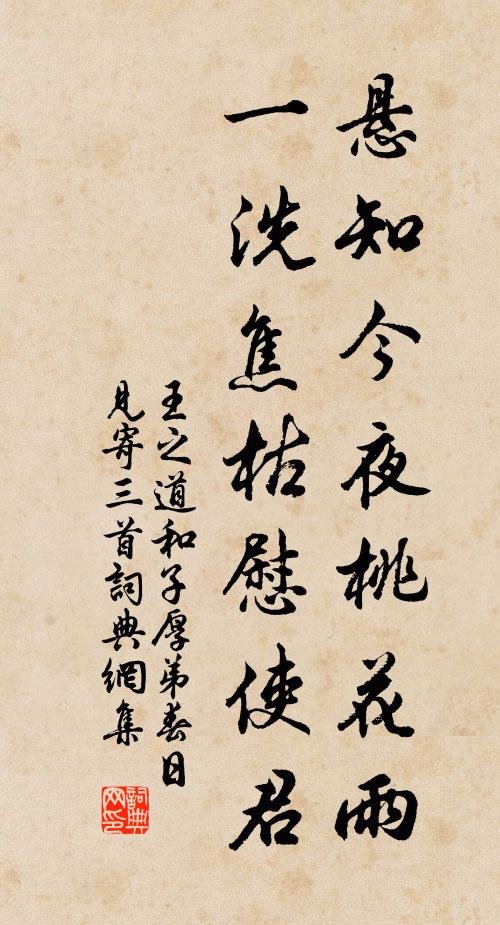 悬知今夜桃花雨
一洗焦枯慰使君
王之道和子厚弟春日
見寄三首詞典網集
詞典
网印